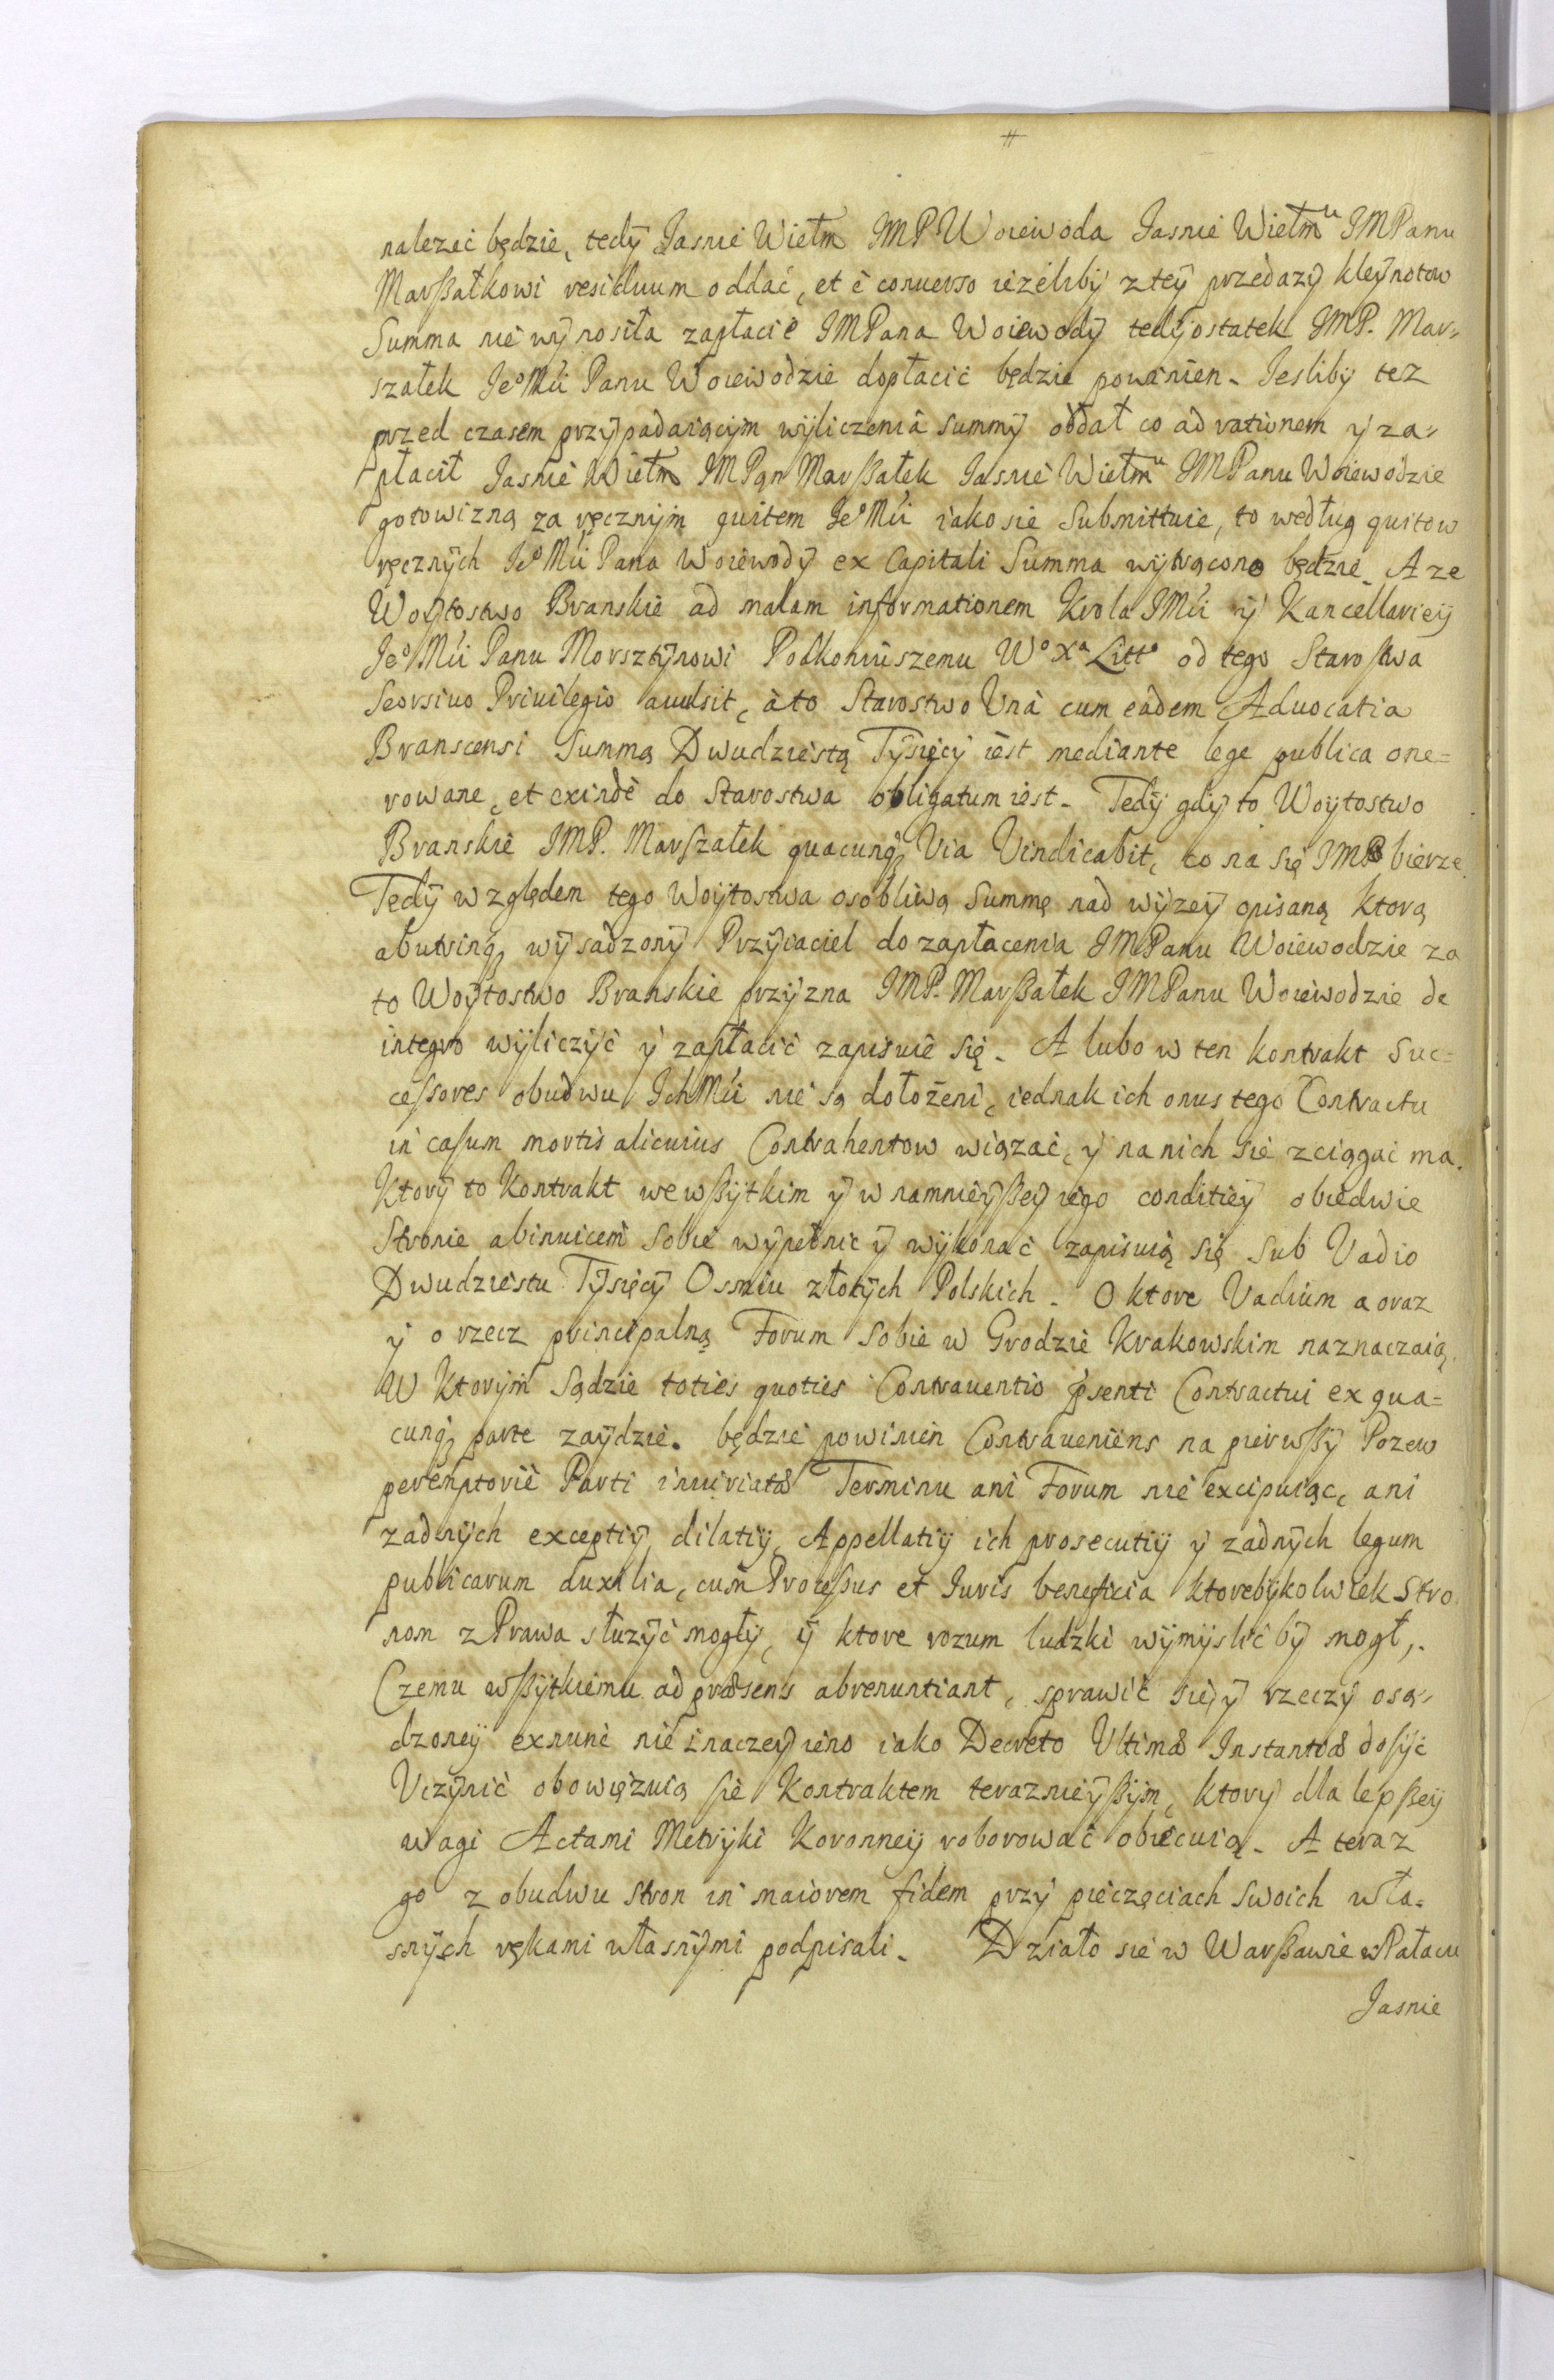 #
nalezeć będzie, tedy Jasnie Wielm IMP Woiewoda Jasnie Wielm<sup>u</sup> IMPanu
Marßałkowi residuum oddać, et è conuerso ieżeliby z tey przedazy kleynotow
Summa nie wynosiła zapłacić IMPana Woiewody tedy ostatek IMP. Mar-
szałek Je<sup>o</sup>Mći Panu Woiewodzie dopłacić będzie powinien. Jesliby tez
przed czasem przypadaiącym wyliczenia summy oddał co ad rationem y za-
płacił Jasnie Wielm IMPan Marßałek Jasnie Wielm<sup>u</sup> IMPanu Woiewodzie
gotowizną za ręcznym quitem Je<sup>o</sup>Mći iako sie Submittuie, to według quitow
ręcznych Je<sup>o</sup>Mći Pana Woiewody ex Capitali Summa wytrącono będzie. A ze
Woytostwo Branskie ad malam informationem Krola IMći y Kancellariey
Je<sup>o</sup>Mći Panu Morsztynowi Podkoniuszemu W<sup>o</sup> X<sup>a</sup> Litt<sup>o</sup> od tego Starostwa
Seorsiuo Priuilegio auulsit, à to Starostwo Vnà cum eadem Aduocatia
Branscensi Summą Dwudziestą Tysięcy iest mediante lege publica one=
rowane, et exinde do Starostwa obligatum iest. Tedy gdy to Woytostwo
Branskie IMP. Marszałek quacunq<sub>3</sub> Via Vindicabit, co na się IMP bierze.
Tedy względem tego Woytostwa osobliwą Summę nad wyzey opisaną ktorą
abutrinq<sub>3</sub> wysadzony Przyiaciel do zapłacenia IMPanu Woiewodzie za
to Woytostwo Branskie przyzna IMP. Marßałek IMPanu Woiewodzie de
integro wyliczyć y zapłacić zapisuie się. A lubo w ten kontrakt Suc=
cessores obudwu IchMći nie są dołożeni, iednak ich onus tego Contractu
in casum mortis alicuius Contrahentow wiązać, y na nich sie zciągać ma.
Ktory to kontrakt we wßytkim y w namnieyßey iego conditiey obiedwie
Stronie abinuicem sobie wypełnić y wykonać zapisuią się sub Vadio
Dwudziestu Tysięcy Osmiu złotych Polskich. O ktore Vadium a oraz
y o rzecz principalną Forum sobie w Grodzie Krakowskim naznaczaią.
W Ktorym Sądzie toties quoties Contrauentio p̃senti Contractui ex qua=
cunq<sub>3</sub> parte zaydzie. będzie powinien Contraueniens na pierwßy Pozew
peremptorie Parti iniuriatæ Terminu ani Forum nie excipuiąc, ani
zadnych exceptiy, dilatiy, Appellatiy ich prosecutiy y zadnych legum
publicarum auxilia, cum Processus et Iuris beneficia ktorebykolwiek Stro
nom z Prawa służyć mogły, y ktore rozum ludzki wymyslić by mogł,
Czemu wßytkiemu ad præsens abrenuntiant, sprawić się y rzeczy osą-
dzoney exnunc nie inaczey ieno iako Decreto Vltimæ Instantiæ dosyć
Vczynić obowięzuią sie Kontraktem teraznieyßym, ktory dla lepßey
wagi Actami Metryki Koronney roborować obiecuią. A teraz
go z obudwu stron in maiorem fidem przy pieczęciach swoich wła-
snych rękami własnymi podpisali. Działo sie w Warßawie w Pałacu
Jasnie